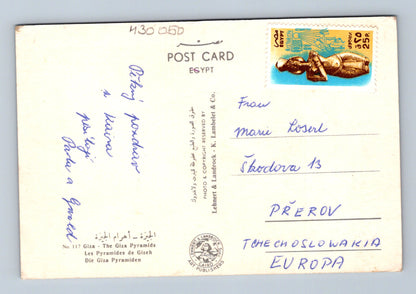 430 05D
مصر
POST CARD
EGYPT
مصر EGYPT
25 P
٢٥
Pěkný pozdrav
z
posílají
Pavla a
Frau
Marie Loserl
Škodova 13
PŘEROV
TCHECHOSLOWAKIA
EUROPA
PHOTO & COPYRIGHT RESERVED BY
Lehnert & Landrock - K. Lambelet & Co.
الجيزة - أهرام الجيزة
No 117 Giza - The Giza Pyramids
Les Pyramides de Gizeh
Die Giza Pyramiden
LEHNERT & LANDROCK
CAIRO
ART PUBLISHERS